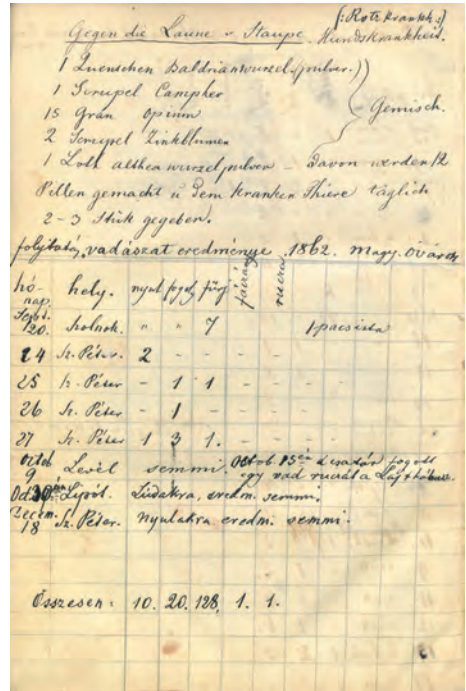 (:Rotz Krankh:)
Gegen die Laune u Staupe. Hundskrankheit.
1 Quenschen Baldrianwurzel (pulver.)
1 Scrupel Campher
15 Gran Opium
Gemisch.
2 Scrupel Zinkblumen
1 Loth althea wurzelpulver – davon werden 12
Pillen gemacht u dem kranken Thiere täglich
2-3 Stük gegeben.
folytatás, vadászat eredménye 1862. Magy. Óvárott
hó-nap hely. nyul fogoly fürj
Sept. 20. Szolnok. " " 7 1 pacsirta
24 Sz. Péter. 2 - - - -
25 Sz. Péter - 1 1 - -
26 Sz. Péter - 1 - - -
27 Sz. Péter 1 3 1. - -
Octob 9 Levél semmi. Octob. 15én fogott
egy vad ruczát a Lajthában.
Lipót. Ludakra, eredm. semmi.
Decem. 18 Sz. Péter. nyulakra eredm. semmi.
Összesen: 10. 20. 128. 1. 1.